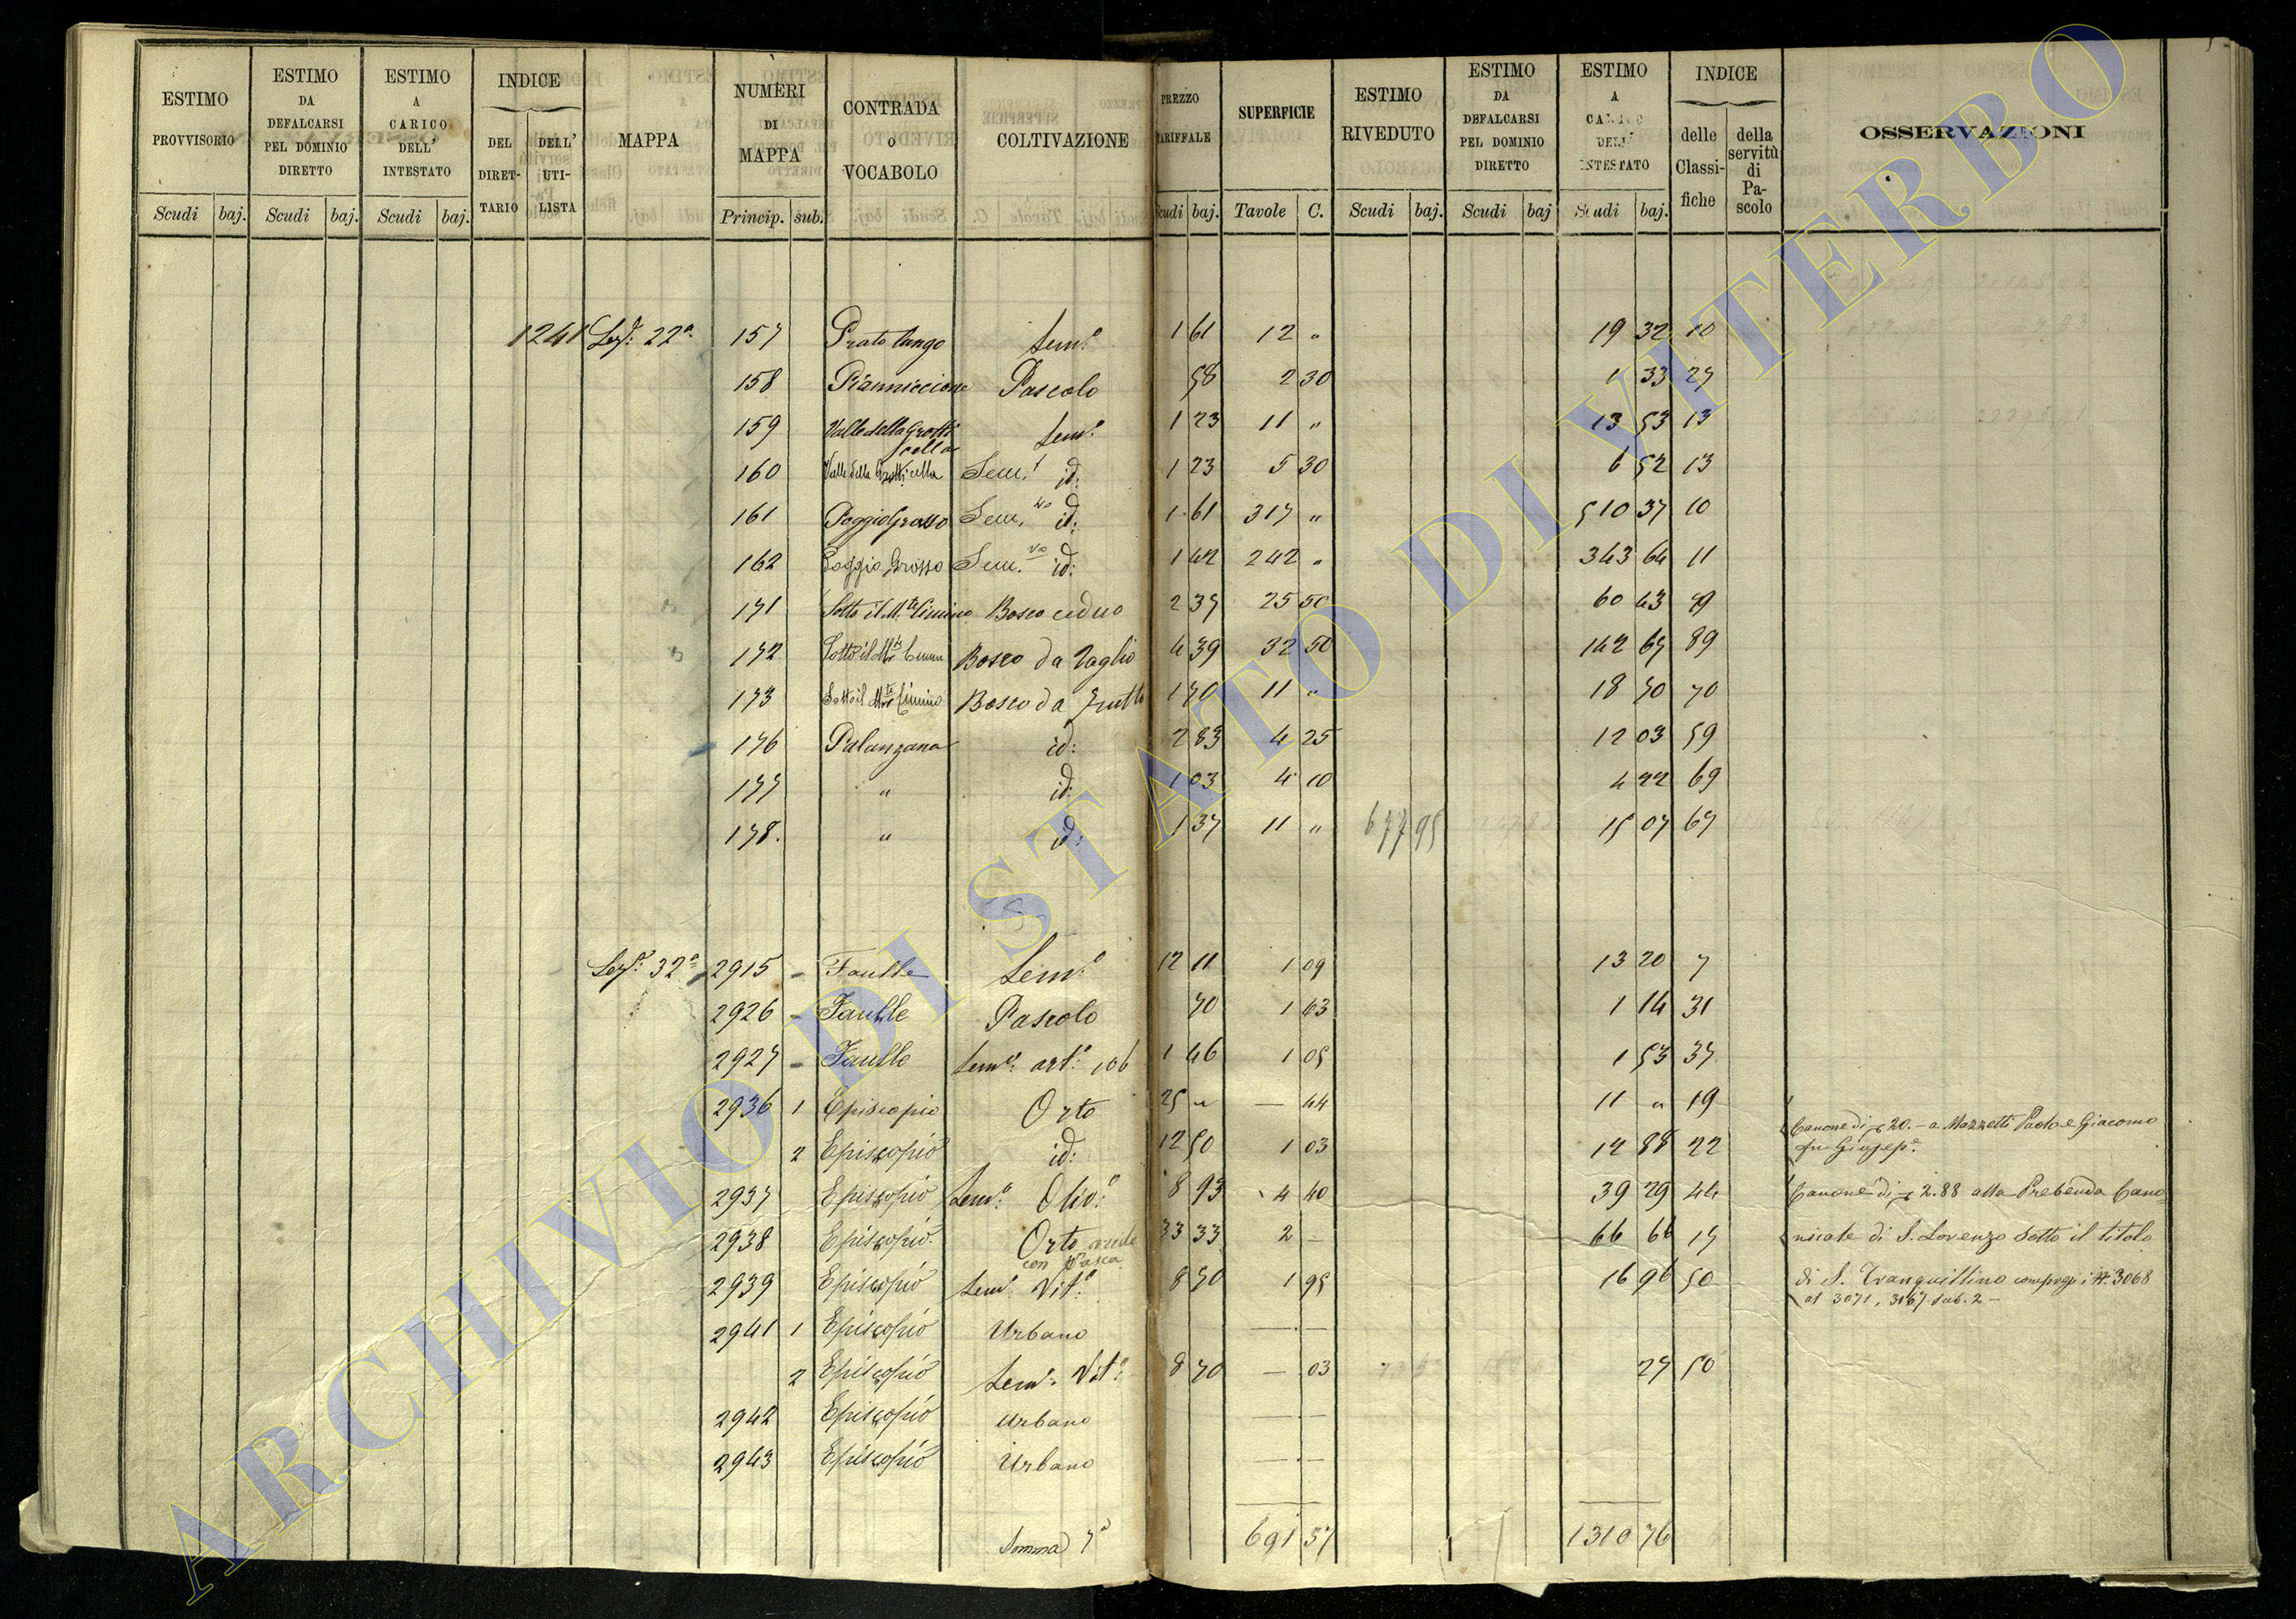 ESTIMO PROVVISORIO | ESTIMO DA DEFALCARSI PEL DOMINIO DIRETTO | ESTIMO A CARICO DELL' INTESTATO | INDICE DEL DIRETTARIO | DELL' UTILISTA | MAPPA | NUMERI DI MAPPA | CONTRADA O VOCABOLO | COLTIVAZIONE | PREZZO TARIFFALE | SUPERFICIE | ESTIMO RIVEDUTO | ESTIMO DA DEFALCARSI PEL DOMINIO DIRETTO | ESTIMO A CARICO DELL' INTESTATO | INDICE delle Classifiche | della servitù di Pascolo | OSSERVAZIONI
Scudi | baj. | Scudi | baj. | Scudi | baj. | Princip. | sub. | Scudi | baj. | Tavole | C. | Scudi | baj. | Scudi | baj | Scudi | baj.
1241 Sez.e 22a 157 Prato lungo Sem.o 1 61 12 " 19 32 10
158 Pianniccione Pascolo 58 2 30 1 33 27
159 Valle della Grotticella Sem.o 1 23 11 " 13 53 13
160 Valle della Grotticella Sem. id: 1 23 5 30 6 52 13
161 Poggio Grosso Sem.vo id: 1 61 317 " 510 37 10
162 Poggio Grosso Sem.vo id: 1 42 242 " 343 64 11
171 Sotto il M.te Cimino Bosco ceduo 2 37 25 50 60 43 89
172 Sotto il M.te Cimino Bosco da Taglio 4 39 32 50 142 67 89
173 Sotto il M.te Cimino Bosco da Frutto 1 70 11 " 18 70 70
176 Palanzana id: 2 83 4 25 12 03 59
177 " id: 1 03 4 10 4 22 69
178. " id: 1 37 11 " 677 95 15 07 67
Sez.e 32a 2915 - Faulle Sem.o 12 11 1 09 13 20 7
2926 - Faulle Pascolo 70 1 63 1 14 31
2927 - Faulle Sem.o art.o 106 1 46 1 05 1 53 37
2936 1 Episcopio Orto 25 " — 44 11 " 19
Canone di 20. - a Mazzetti Paolo e Giacomo
2 Episcopio id: 12 50 1 03 12 88 22 fu Giusep.e
2937 Episcopio Sem.o Oliv.o 8 93 4 40 39 29 44 Canone di 2.88 alla Prebenda Cano
2938 Episcopio Orto 33 33 2 — 66 66 15 nicale di S. Lorenzo sotto il titolo
con vasca
2939 Episcopio Sem.o Vit.o 8 70 1 95 16 96 50 di S. Tranquillino compresi i 3068
al 3071, 3167 sub. 2 -
2941 1 Episcopio Urbano — —
2 Episcopio Sem.o Vit.o 8 70 — 03 27 50
2942 Episcopio Urbano — —
2943 Episcopio Urbano — —
Somma 7a 691 37 1310 76
ARCHIVIO DI STATO DI VITERBO